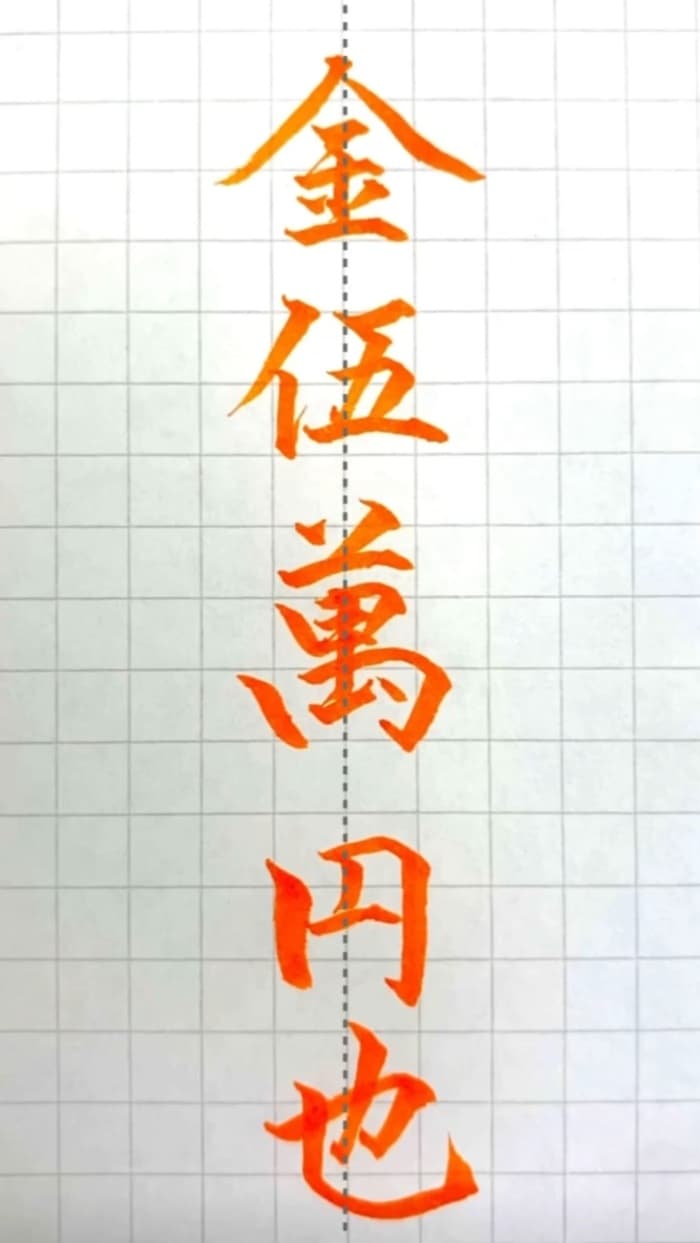 金伍萬円也